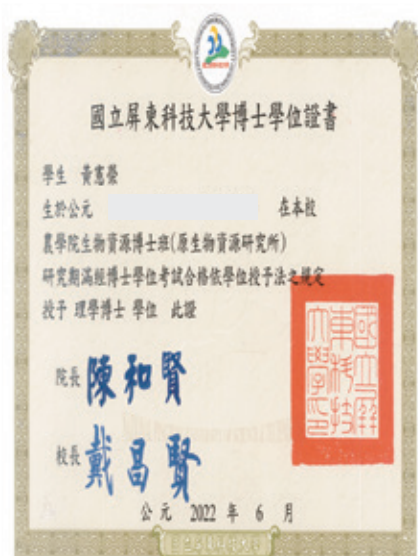 國立屏東科技大學博士學位證書
學生 黃憲榮
生於公元 在本校
農學院生物資源博士班(原生物資源研究所)
研究期滿經博士學位考試合格依學位授予法之規定
授予 理學博士 學位 此證
院長 陳和賢
校長 戴昌賢
國立屏東科技大學印
公元 2022 年 6 月